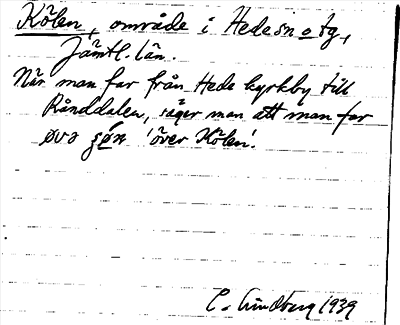 Kölen, område i Hedesn o tg,
Jämtl. län.
När man far från Hede kyrkby till
Rånddalen, säger man att man far
øvə 'över Kölen'.
C. Lundberg 1939